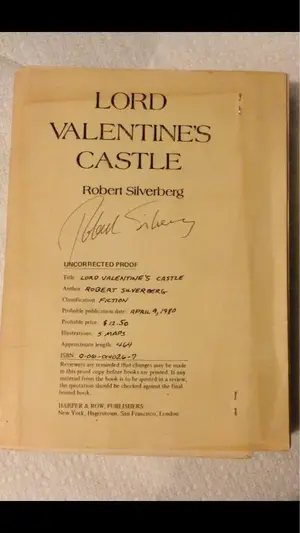 LORD
VALENTINE'S
CASTLE
Robert Silverberg
Robert Silverberg
UNCORRECTED PROOF
Title: LORD VALENTINE'S CASTLE
Author: ROBERT SILVERBERG
Classification: FICTION
Probable publication date: APRIL 9, 1980
Probable price: $12.50
Illustrations: 5 MAPS
Approximate length: 464
ISBN: 0-06-014026-7
Reviewers are reminded that changes may be made
in this proof copy before books are printed. If any
material from the book is to be quoted in a review,
the quotation should be checked against the final
bound book.
HARPER & ROW, PUBLISHERS
New York, Hagerstown, San Francisco, London